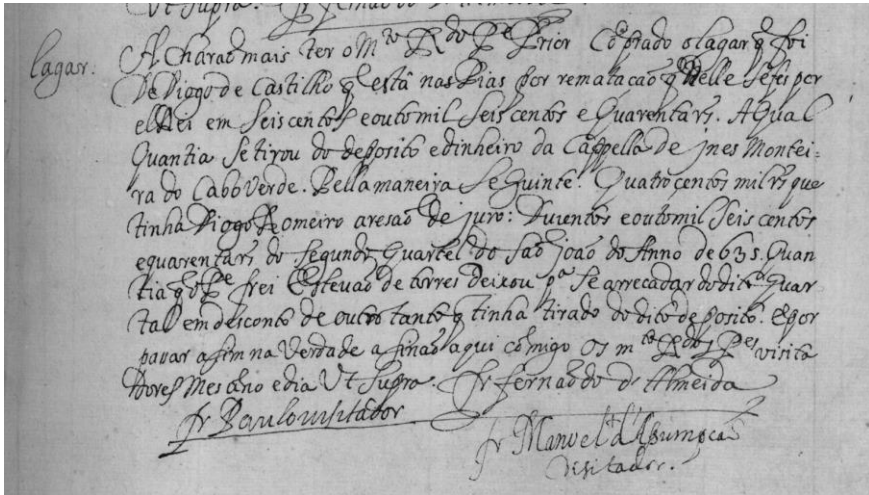 Vt Supra. fr fernando d Almeida
lagar.
Acharaõ mais ter o M.to R.do P.e Prior Cõprado o lagar q̃ foi
de Diogo de Castilho q̃ està nas Pias por remataçaõ q̃ delle se fes por
elRei em Seis centos e outo mil Seis centos e Quarenta rs. A Qual
Quantia Se tirou do deposito e dinheiro da Cappella de Jnes Montei=
ra do Cabo Verde. Pella maneira Seguinte. Quatro centos mil rs que
tinha Diogo Romeiro a resaõ de juro: Duzentos e outo mil Seis centos
e quarenta rs do Segundo Quartel do Saõ joaõ do Anno de 635. Quan
tia q̃ o P.e frei Estevaõ de torres deixou p.a Se arrecadar do dito Quar
tal em desconto de outro tanto q̃ tinha tirado do dito deposito. E por
passar assim na Verdade asinaõ aqui cõmigo os m.to R.dos P.es visita
dores Mes Anno e dia Vt Supra. fr fernando d Almeida
fr Paulo visitador
fr Manoel d Asumpçaõ
visitador.